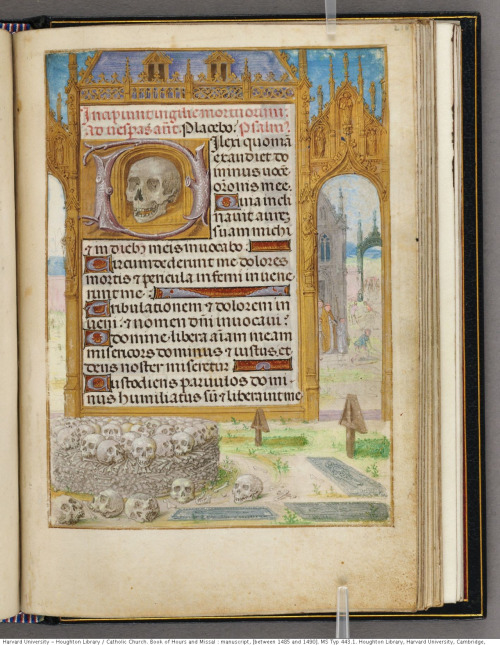 Incipiunt vigilie mortuorum.
ad vesperas añt. Placebo. Psalm9.
Dilexi quoniã
exaudiet do
minus uocẽ
orõnis mee.
Quia incli
nauit aurẽ
suam michi
⁊ in dieb9 meis inuocabo.
Circumdederunt me dolores
mortis ⁊ pericula inferni inuene
runt me.
Tribulationem ⁊ dolorem in
ueni: ⁊ nomen dñi inuocaui.
O domine libera añam meam
misericors dominus ⁊ iustus, et
deus noster miseretur
Custodiens paruulos domi
nus humiliatus sũ ⁊ liberauit me
Harvard University - Houghton Library / Catholic Church. Book of Hours and Missal : manuscript, [between 1485 and 1490]. MS Typ 443.1. Houghton Library, Harvard University, Cambridge,